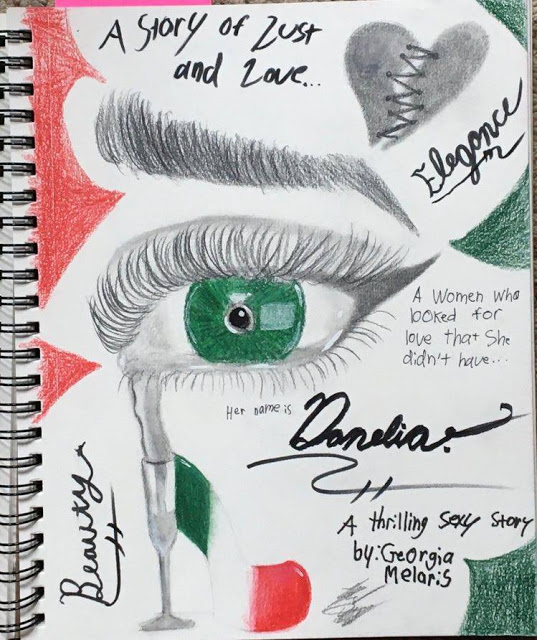 A Story of Lust
and Love...
Elegance
A Women who
looked for
love that she
didn't have...
Her name is
Danelia.
Beauty
A thrilling sexy story
by: Georgia
Melaris